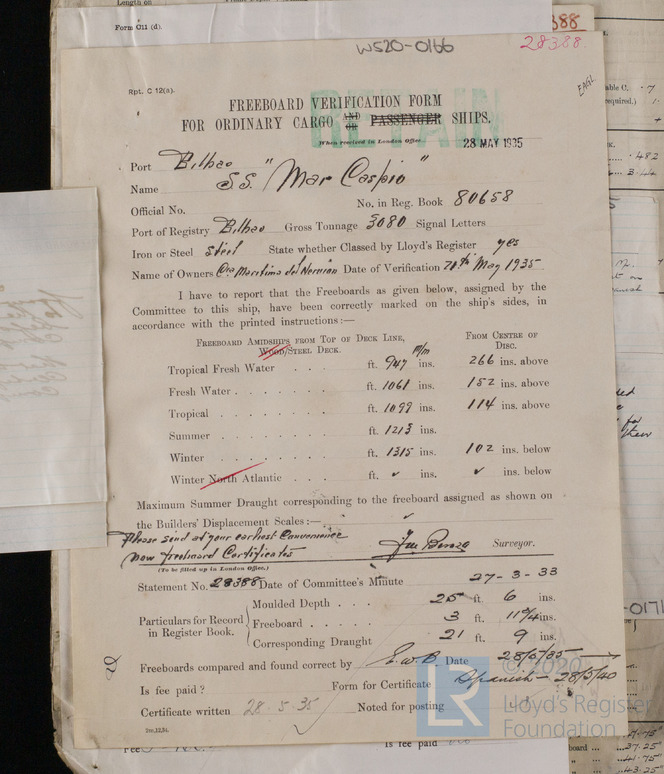 Length on
Form C11 (d).
3388
W520-0166
28388.
Rpt. C 12(a).
EAGL
RETAIN
FREEBOARD VERIFICATION FORM
FOR ORDINARY CARGO AND OR PASSENGER SHIPS.
When received in London Office 28 MAY 1935
Port Bilbao
Name S.S. "Mar Caspio"
Official No. No. in Reg. Book 80658
Port of Registry Bilbao Gross Tonnage 3080 Signal Letters
Iron or Steel Steel State whether Classed by Lloyd's Register yes
Name of Owners Cia Maritima del Nervion Date of Verification 20th May 1935
I have to report that the Freeboards as given below, assigned by the
Committee to this ship, have been correctly marked on the ship's sides, in
accordance with the printed instructions :—
FREEBOARD AMIDSHIPS FROM TOP OF DECK LINE, m/m FROM CENTRE OF
WOOD/STEEL DECK. DISC.
Tropical Fresh Water . . . ft. 947 ins. 266 ins. above
Fresh Water . . . . . . . ft. 1061 ins. 152 ins. above
Tropical . . . . . . . ft. 1099 ins. 114 ins. above
Summer . . . . . . . ft. 1213 ins.
Winter . . . . . . . ft. 1315 ins. 102 ins. below
Winter North Atlantic . . . ft. ✓ ins. ✓ ins. below
Maximum Summer Draught corresponding to the freeboard assigned as shown on
the Builders' Displacement Scales :— ✓
Please send at your earliest convenience
new freeboard Certificates
Surveyor.
(To be filled up in London Office.)
Statement No. 28388 Date of Committee's Minute 27-3-33
Particulars for Record in Register Book.
Moulded Depth . . . . 25 ft. 6 ins.
Freeboard . . . . . 3 ft. 11¾ ins.
Corresponding Draught 21 ft. 9 ins.
Freeboards compared and found correct by E.W.B. Date 28/5/35
Is fee paid ? Form for Certificate Spanish - 28/5/40
Certificate written 28.5.35 Noted for posting
© 2020
LR Lloyd's Register
Foundation
Is fee paid